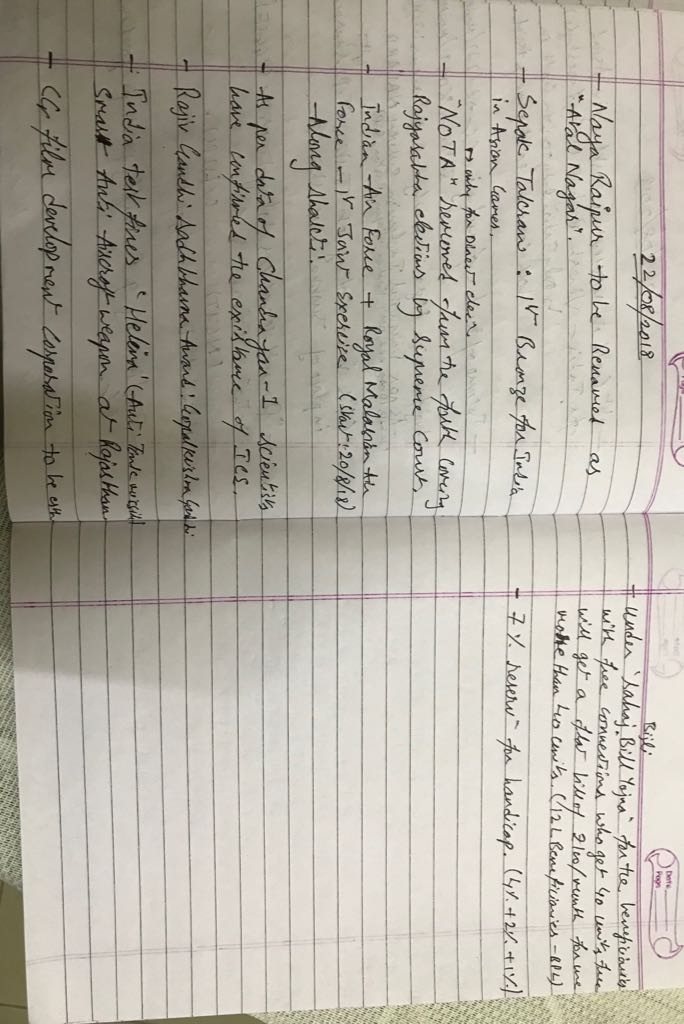 22/08/2018
- Naya Raipur to be Renamed as
"Atal Nagar".
- Sepak Takraw : 1st Bronze for India
in Asian Games.
→ only for Direct elecn
- "NOTA" removed from the
Rajyasabha elections by Supreme Court.
- Indian Air Force + Royal Malasian Air
Force - 1st Joint Exercise (Start: 20/8/18)
- As per data of Chandrayan-I scientists
have confirmed the existence of ICE.
- Rajiv Gandhi Sadhbhavna Award : Gopalkrishna Gandhi
- India test fires "Helina" (Anti Tank missile)
Smart Anti Aircraft weapon at Rajasthan
- CG Film development Corporation to be esth
Date
Page
Bijli
- Under "Sahaj Bill Yojna" for the beneficiaries
with free connections who get 40 units free
will get a flat bill of 100/month for use
more than 40 units. (12L Beneficiaries - BPL)
- 7% reservn for handicap. (4% + 2% + 1%)